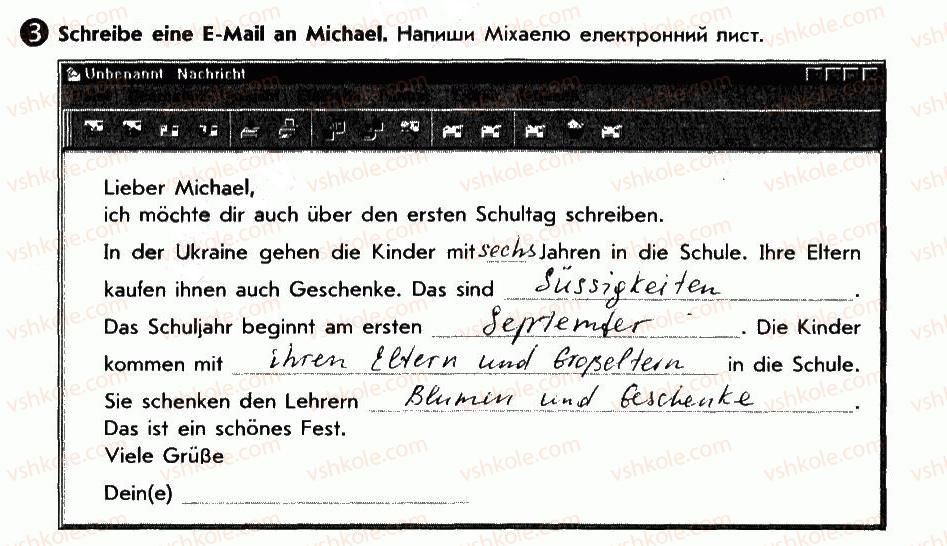 3 Schreibe eine E-Mail an Michael. Напиши Міхаелю електронний лист.
Unbenannt Nachricht
Lieber Michael,
ich möchte dir auch über den ersten Schultag schreiben.
In der Ukraine gehen die Kinder mit sechs Jahren in die Schule. Ihre Eltern
kaufen ihnen auch Geschenke. Das sind Süssigkeiten.
Das Schuljahr beginnt am ersten September. Die Kinder
kommen mit ihren Eltern und Großeltern in die Schule.
Sie schenken den Lehrern Blumen und Geschenke.
Das ist ein schönes Fest.
Viele Grüße
Dein(e)
vshkole.com